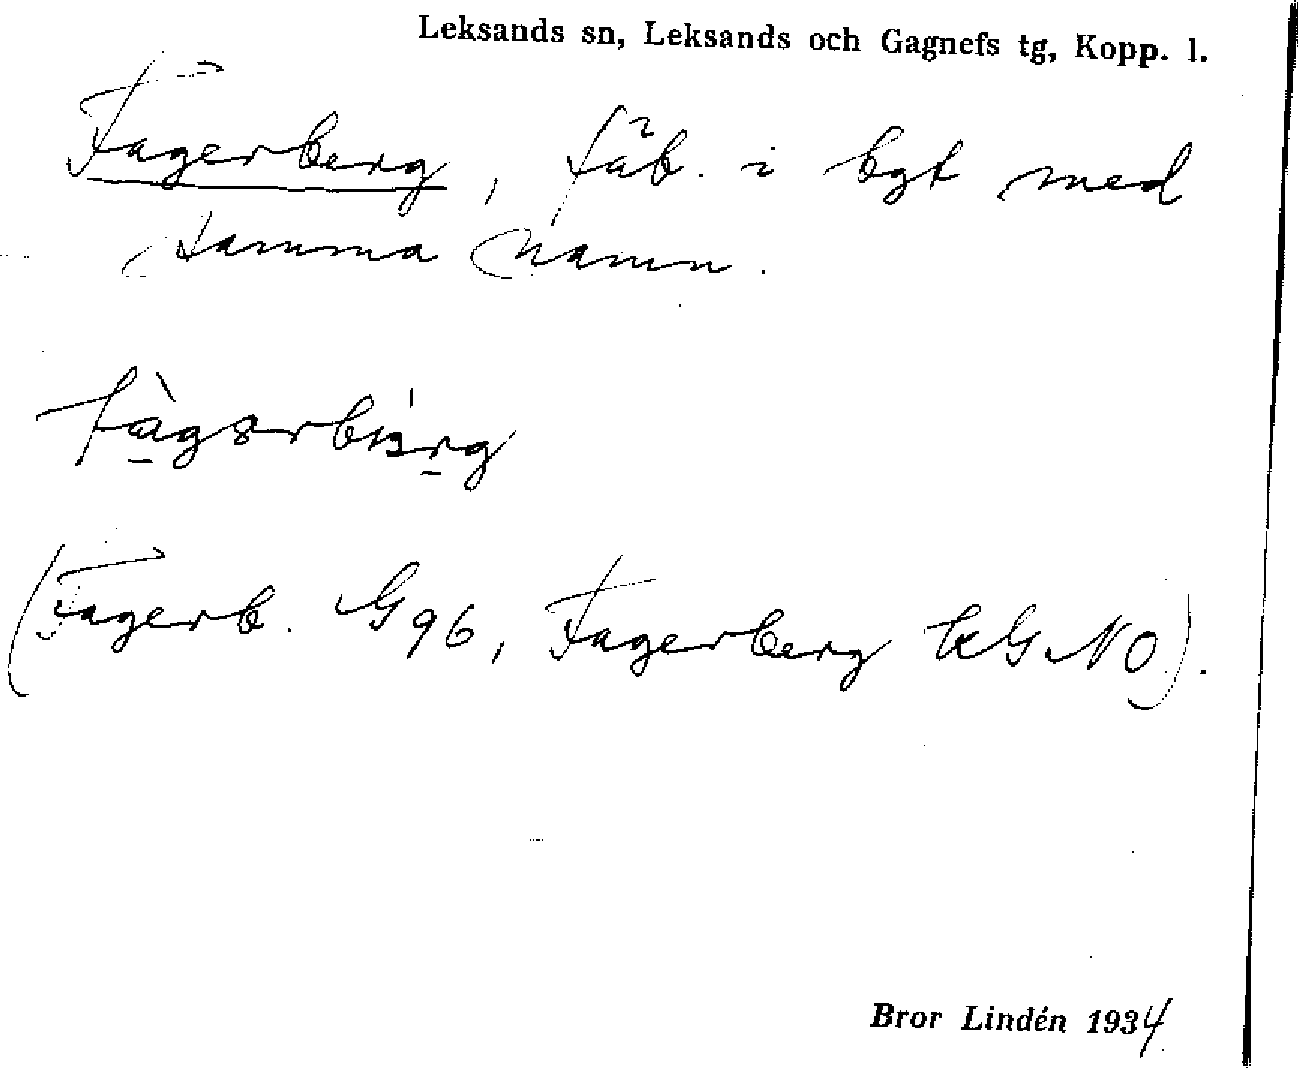 Leksands sn, Leksands och Gagnefs tg, Kopp. l.
Fagerberg, fäb. i bgt med
samma namn.
(Fagerb. G96, Fagerberg kGNO).
Bror Lindén 1934